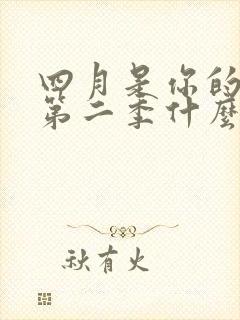 四月是你的
第二季什麼
秋有火